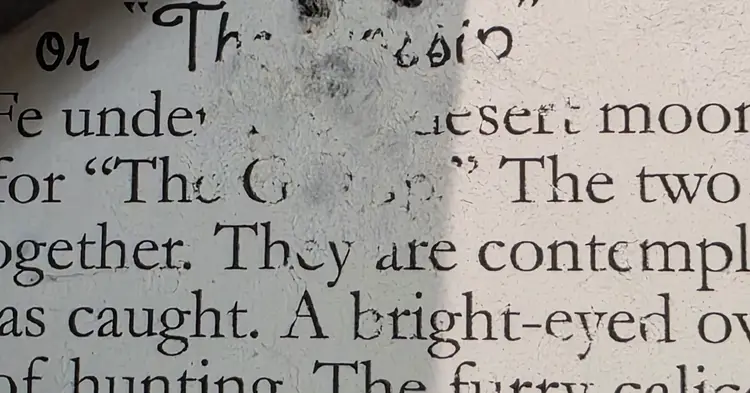 or
Fe under desert moon
for “The ” The two
ogether. They are contempl
as caught. A bright-eyed ov
of hunting. The furry calico